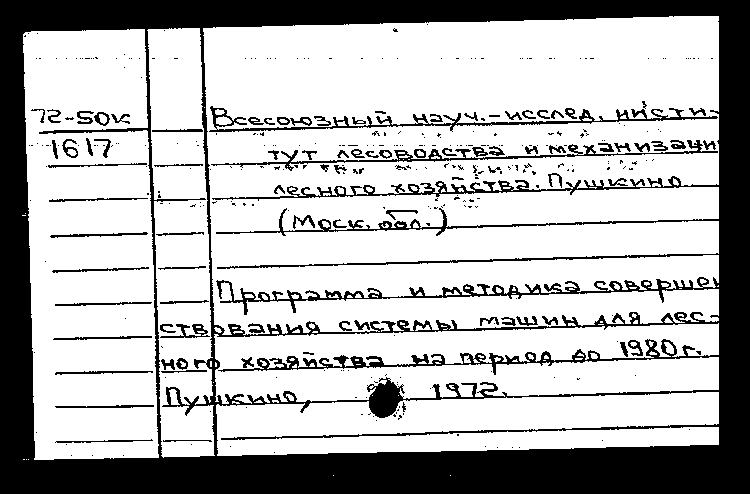 72-50к
1617
Всесоюзный науч.-исслед. инсти-
тут лесоводства и механизации
лесного хозяйства. Пушкино
(Моск. обл.)
Программа и методика совершен
ствования системы машин для лес-
ного хозяйства на период до 1980 г.
Пушкино, 1972.